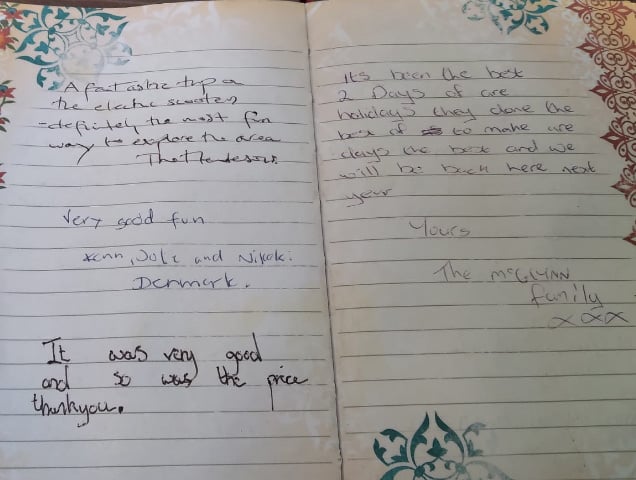 A fantastic trip on
the electric scooters
- definitely the most fun
way to explore the area
The
Very good fun
and
Denmark.
It was very good
and so was the price
thankyou.
its been the best
2 Days of are
holidays they done the
best of to make are
days the best and we
will be back here next
year
Yours
The McGLYNN
family
xxx